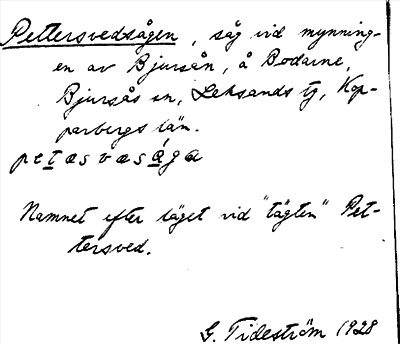 Pettersvedsågen, såg vid mynning-
en av Bjursån, å Bodarne,
Bjursås sn, Leksands tg, Kop-
parbergs län.
petasvæsåga
Namnet efter läget vid "tägten" Pet-
tersved.
G. Tideström 1928